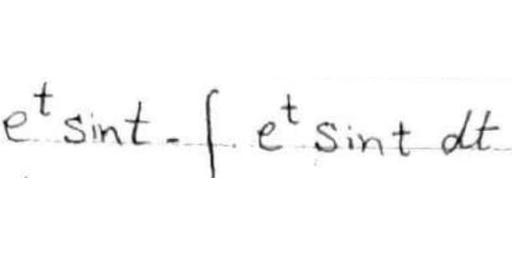 e^t sint - ∫ e^t sint dt